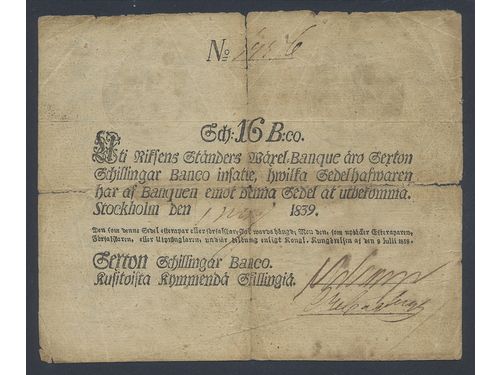 No
Sch: 16 B:co.
Uti Riksens Ständers Wäxel-Banque äro Sexton
Schillingar Banco insatte, hwilka Sedelhafwaren
har af Banquen emot denna Sedel at utbekomma.
Stockholm den 1839.
Den som denne Sedel efterapar eller förfalskar, skal warda hängd; Men den, som uptäcker Efteraparen,
Förfalskaren, eller Utprånglaren, undfår belöning enligt Kongl. Kungörelsen af den
Sexton Schillingar Banco.
Kusitoista Kymmendä Skillingiä.